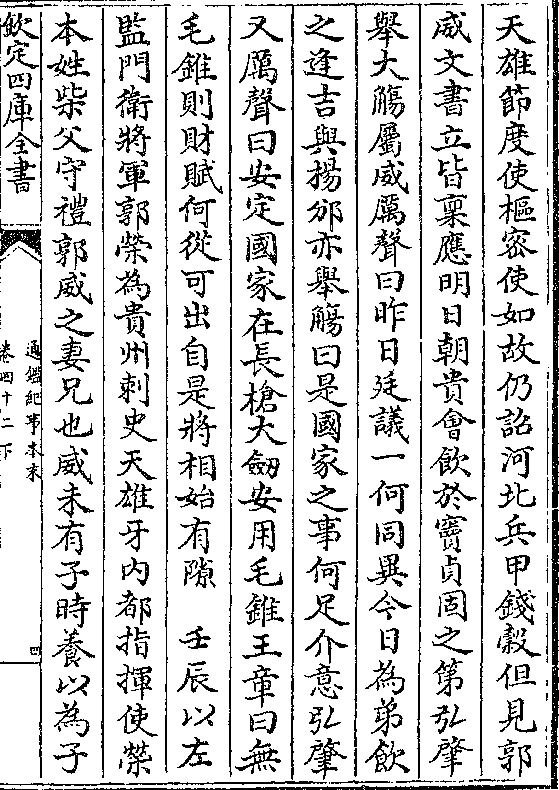 天雄節度使樞密使如故仍詔河北兵甲錢穀但見郭
威文書立皆稟應明日朝貴會飲於竇貞固之第弘肇
舉大觴屬威厲聲曰昨日廷議一何同異今日為弟飲
之逢吉與楊邠亦舉觴曰是國家之事何足介意弘肇
又厲聲曰安定國家在長槍大劔安用毛錐王章曰無
毛錐則財賦何從可出自是將相始有隙　壬辰以左
監門衛將軍郭榮為貴州刺史天雄牙内都指揮使榮
本姓柴父守禮郭威之妻兄也威未有子時養以為子
欽定四庫全書
通鑑紀事本末
卷四十二下
四